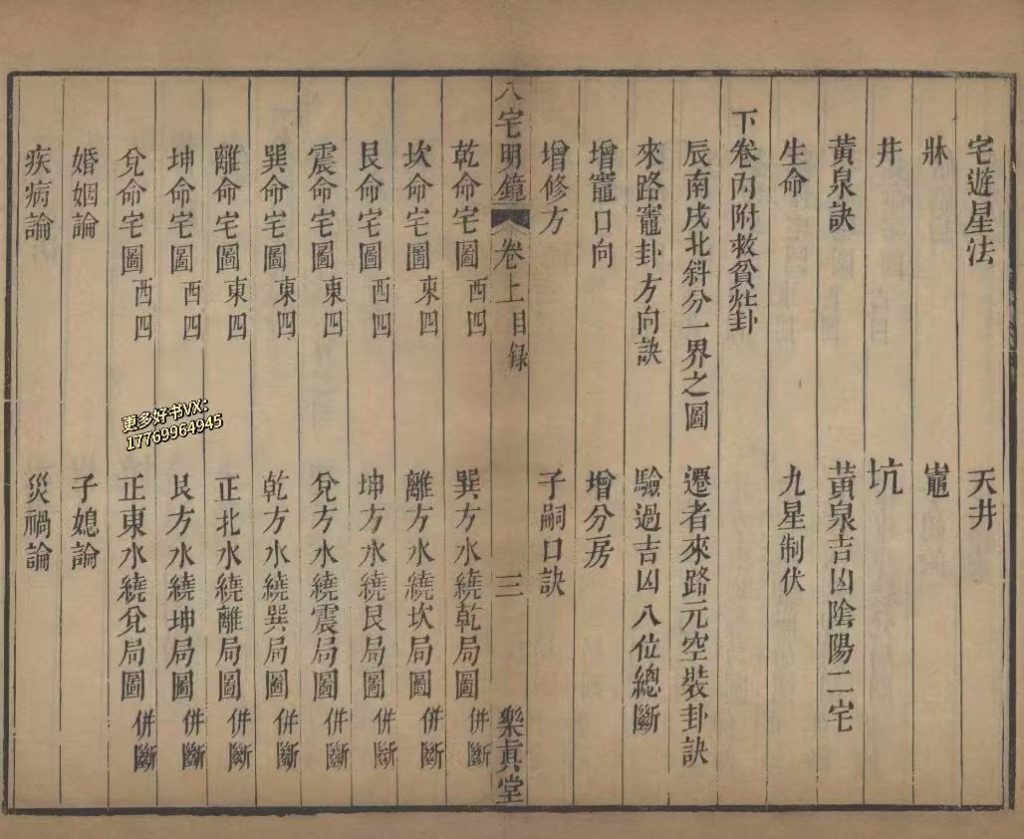 宅遊星法　天井
牀　竈
井　坑
黃泉訣　黃泉吉凶陰陽二宅
生命　九星制伏
下卷內附救貧灶卦
辰南戌北斜分一界之圖　遷者來路元空裝卦訣
來路竈卦方向訣　驗過吉凶八位總斷
增竈口向　增分房
增修方　子嗣口訣
八宅明鏡　卷上目録　三　樂真堂
乾命宅圖西四　巽方水繞乾局圖併斷
坎命宅圖東四　離方水繞坎局圖併斷
艮命宅圖西四　坤方水繞艮局圖併斷
震命宅圖東四　兌方水繞震局圖併斷
巽命宅圖東四　乾方水繞巽局圖併斷
離命宅圖東四　正北水繞離局圖併斷
坤命宅圖西四　艮方水繞坤局圖併斷
兌命宅圖西四　正東水繞兌局圖併斷
婚姻論　子媳論
疾病論　災禍論
更多好书VX：
17769964945